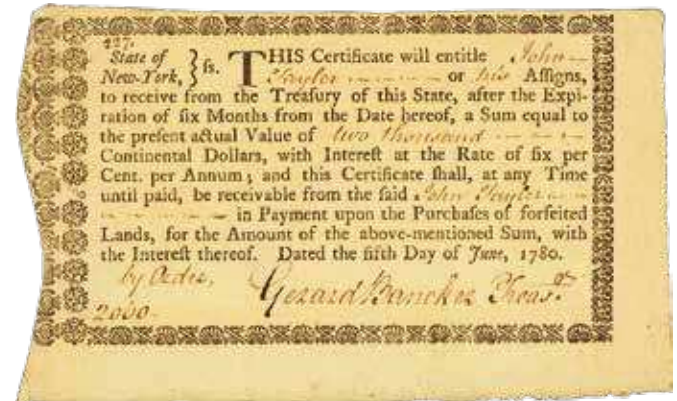 227.
State of New-York, } ſs. THIS Certificate will entitle John
Tayler or his Aſſigns,
to receive from the Treaſury of this State, after the Expi-
ration of ſix Months from the Date hereof, a Sum equal to
the preſent actual Value of two thousand
Continental Dollars, with Intereſt at the Rate of ſix per
Cent. per Annum; and this Certificate ſhall, at any Time
until paid, be receivable from the ſaid John Tayler
in Payment upon the Purchaſes of forfeited
Lands, for the Amount of the above-mentioned Sum, with
the Intereſt thereof. Dated the fifth Day of June, 1780.
by Order,
Gerard Bancker Treasr.
2000.